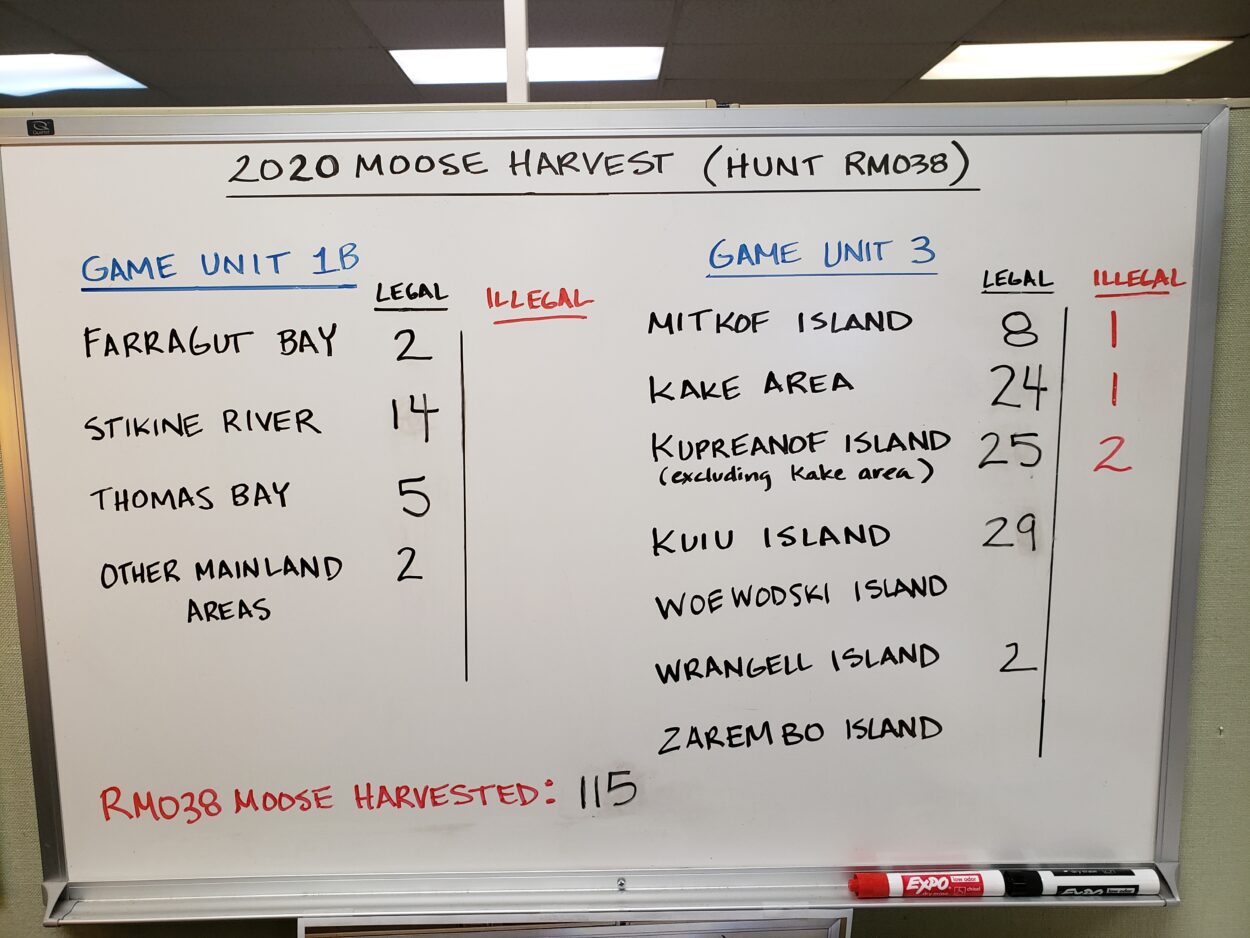 2020 MOOSE HARVEST (HUNT RM038)
GAME UNIT 1B
LEGAL ILLEGAL
FARRAGUT BAY 2
STIKINE RIVER 14
THOMAS BAY 5
OTHER MAINLAND 2
AREAS
GAME UNIT 3
LEGAL ILLEGAL
MITKOF ISLAND 8 1
KAKE AREA 24 1
KUPREANOF ISLAND 25 2
(excluding Kake area)
KUIU ISLAND 29
WOEWODSKI ISLAND
WRANGELL ISLAND 2
ZAREMBO ISLAND
RM038 MOOSE HARVESTED: 115
EXPO low odor
chisel
EXPO